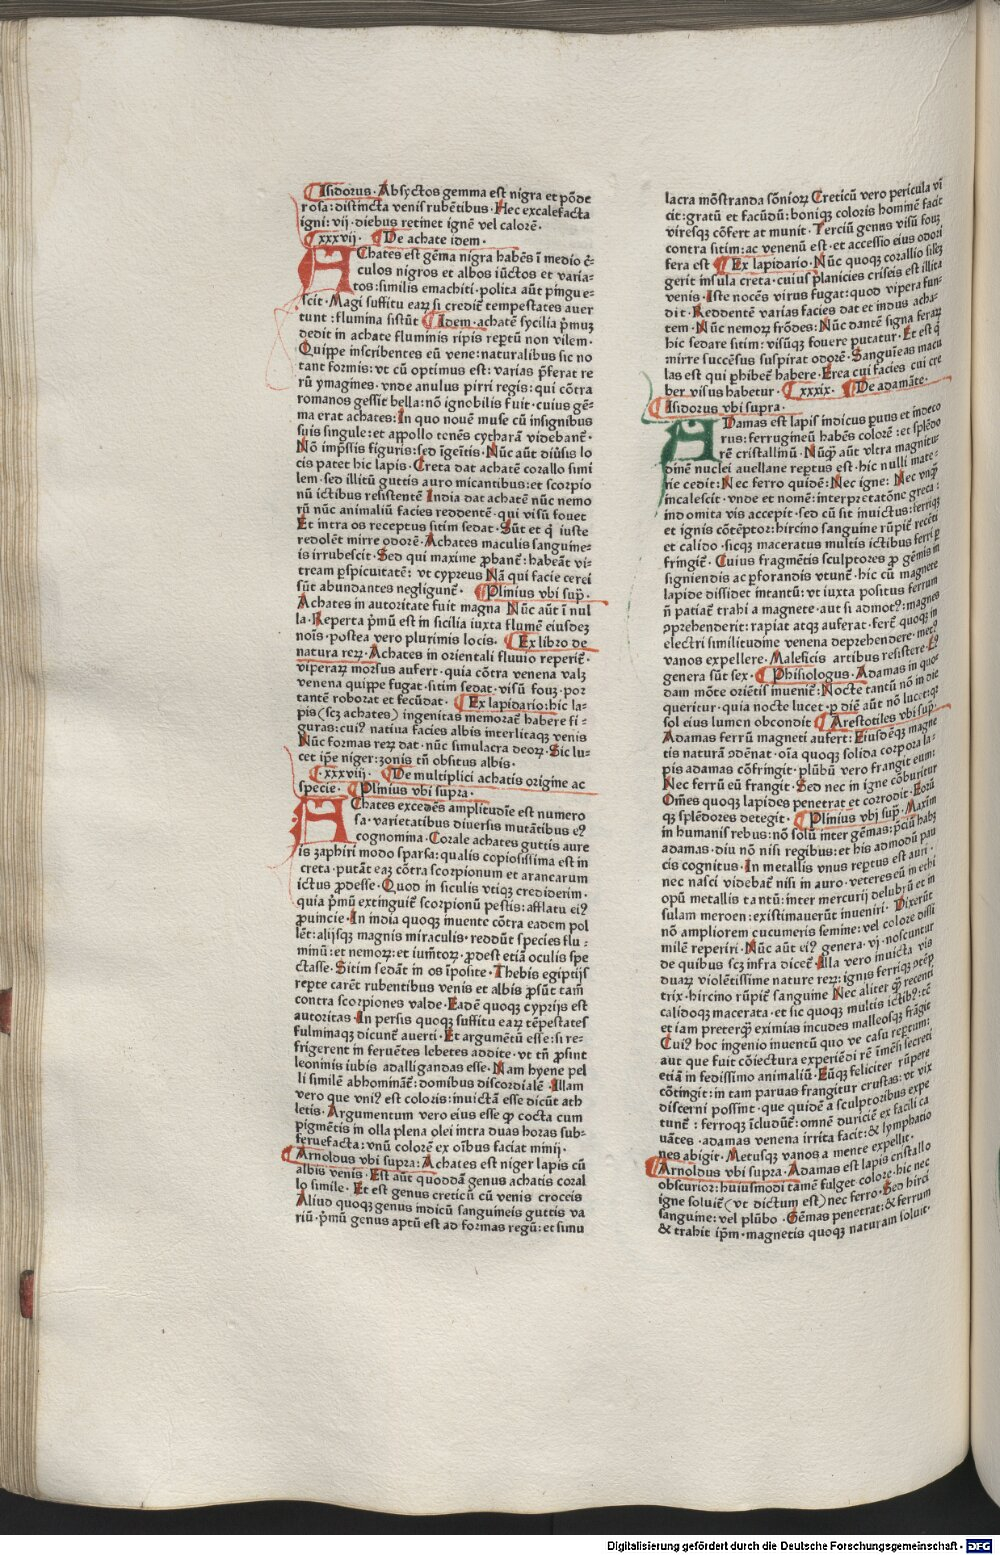 Isidorus. Absyctos gemma est nigra et põde
rosa: distincta venis rubẽtibus. Hec excalefacta
igni: vij. diebus retinet ignẽ vel calorẽ.
xxxvij. De achate idem.
AChates est gẽma nigra habẽs ĩ medio c̃
culos nigros et albos iũctos et varia-
tos: similis emachiti. polita aũt pingue-
scit. Magi suffitu eaꝝ si credit̃ tempestates auer
tunt: flumina sistũt Idem. achatẽ sycilia p̃muꝫ
dedit in achate fluminis ripis rep̃tũ non vilem.
Quippe inscribentes eũ vene: naturalibus sic no
tant formis: vt cũ optimus est: varias p̃ferat re
rũ ymagines. vnde anulus pirri regis: qui cõtra
romanos gessit bella: nõ ignobilis fuit. cuius gẽ-
ma erat achates: In quo nouẽ muse cũ insignibus
suis singule: et appollo tenẽs cytharã videbant̃.
Nõ imp̃ssis figuris: sed ĩgeitis. Nũc aũt diũsis lo
cis patet hic lapis. Creta dat achatẽ corallo simi
lem. sed illitũ guttis auro micantibus: et scorpio
nũ ictibus resistentẽ India dat achatẽ nũc nemo
rũ nũc animaliũ facies reddentẽ. qui visũ fouet
Et intra os receptus sitim sedat. Sũt et q̃ iuste
redolẽt mirre odorẽ. Achates maculis sanguine-
is irrubescit. Sed qui maxime ꝓbant̃: habeãt vi-
tream ꝑspicuitatẽ: vt cypreus Nã qui facie cerei
sũt abundantes negligunt̃. Plinius vbi sup̃.
Achates in autoritate fuit magna Nũc aũt ĩ nul
la. Reperta p̃mũ est in sicilia iuxta flumẽ eiusdeꝫ
nois. postea vero plurimis locis. Ex libro de
natura reꝝ. Achates in orientali fluuio reperit̃.
viperaꝝ morsus aufert. quia cõtra venena valꝫ
venena quippe fugat. sitim sedat. visũ fouꝫ. por
tantẽ roborat et fecũdat. Ex lapidario: hic la-
pis (scꝫ achates) ingenitas memorat̃ habere fi-
guras: cui⁹ natiua facies albis interlitaqꝫ venis
Nũc formas reꝝ dat. nũc simulacra deoꝝ. Sic lu-
cet ip̃e niger: zonis tñ obsitus albis.
xxxviij. De multiplici achatis origine ac
specie. Plinius vbi supra.
AChates excedẽs amplitudĩe est numero
sa. varietatibus diuersis mutãtibus ei⁹
cognomina. Corale achates guttis aure
is zaphiri modo sparsa: qualis copiosissima est in
creta. putãt eaꝫ cõtra scorpionum et arancarum
ictus ꝓdesse. Quod in siculis vtiqꝫ crediderim.
quia p̃mũ extinguit̃ scorpionũ pestis: afflatu ei⁹
ꝓuincie. In india quoqꝫ inuente cõtra eadem pol
lẽt: alijsqꝫ magnis miraculis. reddũt species flu-
minũ: et nemoꝝ: et iumẽtoꝝ. ꝓdest etiã oculis spe
ctasse. Sitim sedãt in os ĩposite. Thebis egiptijs
repte carẽt rubentibus venis et albis ꝓsũt tam̃
contra scorpiones valde. Eadẽ quoqꝫ cyprijs est
autoritas. In persis quoqꝫ suffitu eaꝝ tẽpestates
fulminaqꝫ dicunt̃ auerti. Et argumẽtũ esse: si re-
frigerent in feruẽtes lebetes addite. vt tñ ꝓsint
leoninis iubis adalligandas esse. Nam hyene pel
li similẽ abhominãt̃: domibus discordialẽ. Illam
vero que vni⁹ est coloris: inuictã esse dicũt ath
letis. Argumentum vero eius esse ꝙ cocta cum
pigmẽtis in olla plena olei intra duas horas sub-
feruefacta: vnũ colorẽ ex oĩbus faciat minij.
Arnoldus vbi supra: Achates est niger lapis cũ
albis venis. Est aũt quoddã genus achatis coral
lo simile. Et est genus creticũ cũ venis croceis
Aliud quoqꝫ genus indicũ sanguineis guttis va
riũ. p̃mũ genus aptũ est ad formas regũ: et simu
lacra mõstranda sõnioꝝ Creticũ vero pericula vĩ
cit: gratũ et facũdũ: boniqꝫ coloris hominẽ facit
viresqꝫ cõfert at munit. Terciũ genus visũ fouꝫ
contra sitim: ac venenũ est. et accessio eius odori
fera est Ex lapidario. Nũc quoqꝫ corallio silẽꝫ
gerit insula creta. cuius planicies criseis est illita
venis. Iste nocẽs virus fugat: quod vipera fun-
dit. Reddentẽ varias facies dat et indus acha-
tem. Nũc nemoꝝ frõdes: Nũc dantẽ signa feraꝝ
hic sedare sitim: visũqꝫ fouere putatur. Et est q̃
mirre succẽsus suspirat odorẽ. Sanguĩeas macu
las est qui ꝑhibet̃ habere. Erea cui facies cui cre
ber visus habetur. xxxix. De adamãte.
Isidorus vbi supra.
ADamas est lapis indicus ꝑuus et indeco
rus: ferrugineũ habẽs colorẽ: et splẽdo
rẽ cristallinũ. Nũqꝫ aũt vltra magnitu-
dinẽ nuclei auellane repertus est. hic nulli mate-
rie cedit: Nec ferro quidẽ: Nec igne: Nec vnqꝫ
incalescit. vnde et nomẽ: interpretatõne greca:
indomita vis accepit. sed cũ sit inuictus: ferriqꝫ
et ignis cõtẽptor: hircino sanguine rũpit̃ recẽti
et calido. sicqꝫ maceratus multis ictibus ferri ꝑ
fringit̃. Cuius fragmẽtis sculptores ꝓ gẽmis in
signiendis ac ꝑforandis vtunt̃. hic cũ magnete
lapide dissidet intantũ: vt iuxta positus ferrum
ñ patiat̃ trahi a magnete. aut si admot⁹: magnes
ꝯprehenderit: rapiat atqꝫ auferat. fert̃ quoqꝫ in
electri similitudine venena deprehendere. met⁹
vanos expellere. Maleficis artibus resistere. E⁹
genera sũt sex. Phisiologus. Adamas in quo-
dam mõte oriẽtis inuenit̃: Nocte tantũ nõ in die
queritur. quia nocte lucet. ꝑ diẽ aũt nõ lucet: qꝫ
sol eius lumen obcondit Arestotiles vbi sup̃
Adamas ferrũ magneti aufert: Eiusdẽqꝫ magne
tis naturã ꝯdẽnat. oĩa quoqꝫ solida corpora la-
pis adamas cõfringit. plũbũ vero frangit eum:
Nec ferrũ eũ frangit. Sed nec in igne cõburitur
Om̃es quoqꝫ lapides penetrat et corrodit. Eorũ
qꝫ splẽdores detegit. Plinius vbi sup̃. Maxim
in humanis rebus: nõ solũ inter gẽmas: p̃ciũ habꝫ
adamas. diu nõ nisi regibus: et his admodũ pau
cis cognitus. In metallis vnus repertus est auri.
nec nasci videbat̃ nisi in auro. veteres eũ in ethi
opũ metallis tantũ: inter mercurij delubrũ et in
sulam meroen: existimauerũt inueniri. Dixerũt
nõ ampliorem cucumeris semine: vel colore dissi
milẽ reperiri. Nũc aũt ei⁹ genera. vj. noscuntur
de quibus scꝫ infra dicet̃. Illa vero inuicta vis
duaꝝ violẽtissime nature reꝝ: ignis ferriqꝫ ꝯtẽp
trix. hircino rũpit̃ sanguine Nec aliter qꝫ recenti
calidoqꝫ macerata. et sic quoqꝫ multis ictib⁹: tẽ
et iam preterqꝫ eximias incudes malleosqꝫ frãgit
Cui⁹ hoc ingenio inuentũ quo ve casu repertum:
aut que fuit cõiectura experiẽdi rẽ ĩmẽsi secreti
etiã in fedissimo animaliũ. Eũqꝫ feliciter rũpere
cõtingit: in tam paruas frangitur crustas: vt vix
discerni possint. que quidẽ a sculptoribus expe
tunt̃: ferroqꝫ ĩcludũt̃: omnẽ duriciẽ ex facili ca
uãtes. adamas venena irrita facit: & lymphatio
nes abigit. Metusqꝫ vanos a mente expellit.
Arnoldus vbi supra. Adamas est lapis cristallo
obscurior: huiusmodi tamẽ fulget colore. hic nec
igne soluit̃ (vt dictum est) nec ferro. Sed hirci
sanguine: vel plũbo. Gẽmas penetrat: & ferrum
& trahit ip̃m. magnetis quoqꝫ naturam soluit.
Digitalisierung gefördert durch die Deutsche Forschungsgemeinschaft - DFG